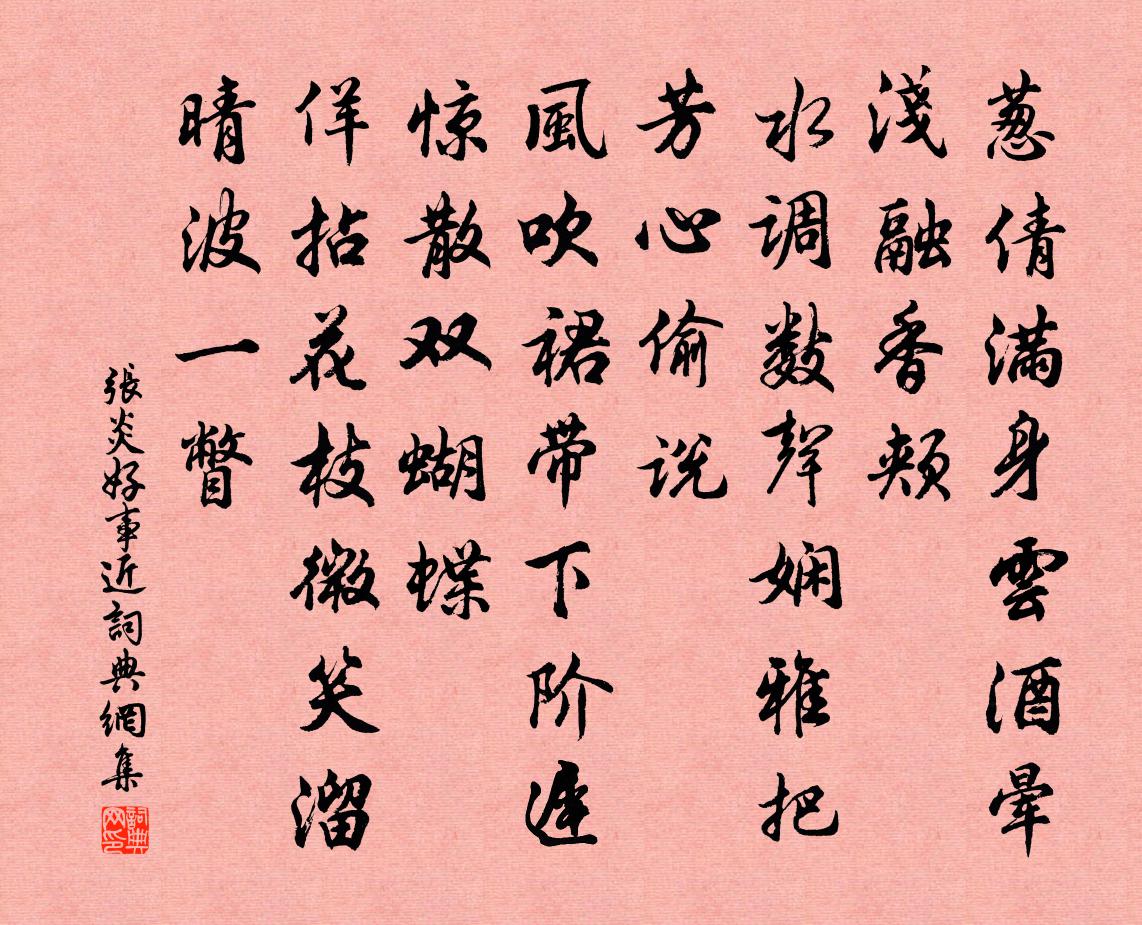 葱倩满身雲酒暈
淺融香頰
水调数聲娴雅把
芳心偷说
風吹裙带下阶遲
惊散双蝴蝶
佯拈花枝微笑溜
晴波一瞥
張炎好事近詞典網集
詞典网印